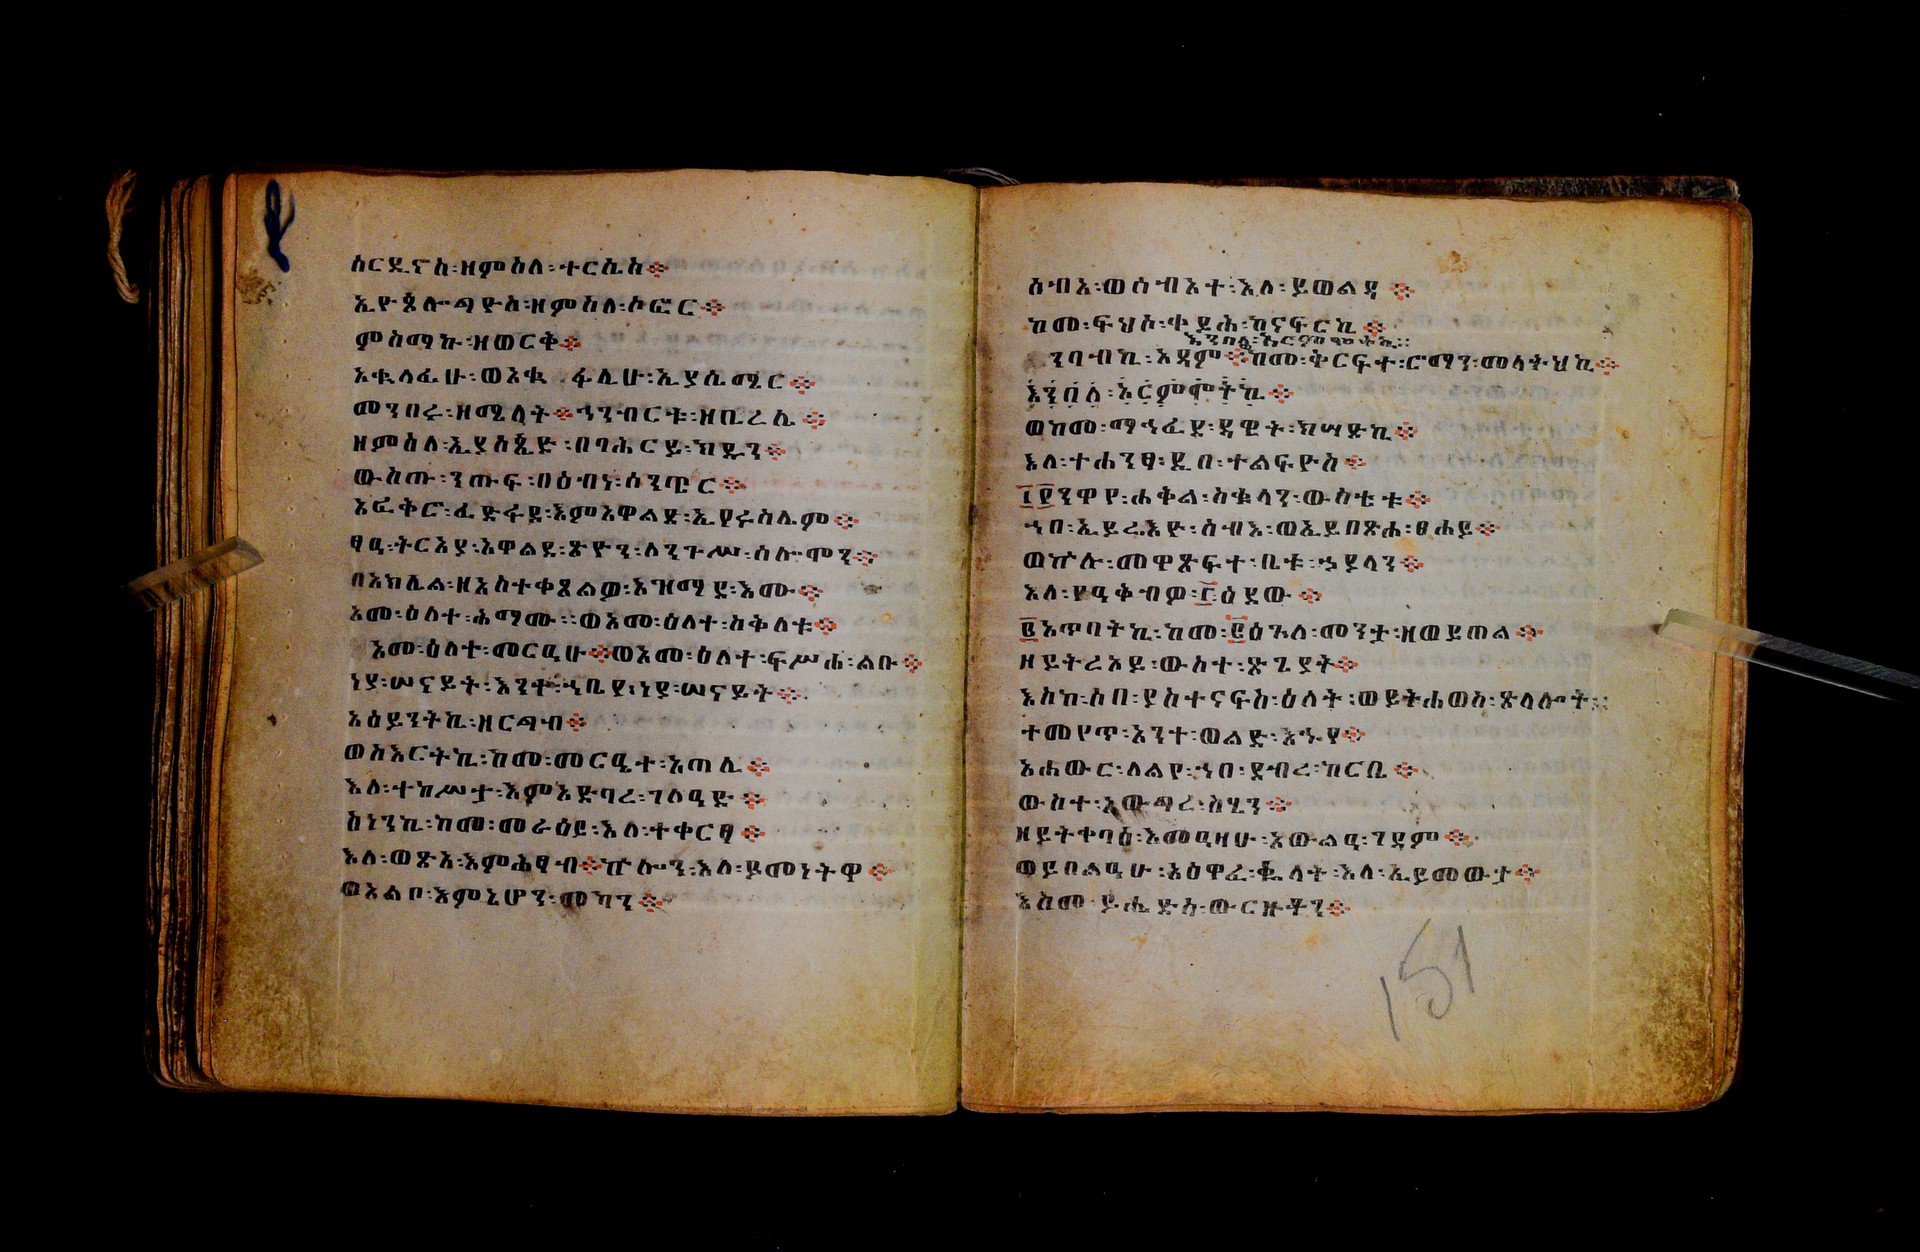 ሰርዲኖስ፡ዘምስለ፡ተርሴስ፨
ኢዮጰሎጫዮስ፡ዘምስለ፡ሶፎር፨
ምስማኩ፡ዘወርቅ፨
አቊላፊሁ፡ወእቊ ፋሊሁ፡ኢያሲሜር፨
መንበሩ፡ዘሜላት፨ኅንብርቱ፡ዘቢረሌ፨
ዘምስለ፡ኢያስጲድ፡በባሕርይ፡ክዱን፨
ውስጡ፡ንጡፍ፡በዕብነ፡ሰንፔር፨
እፎቅሮ፡ፈድፋደ፡እምአዋልደ፡ኢየሩሳሌም፨
ፃዒ፡ትርአያ፡አዋልደ፡ጽዮን፡ለንጉሥ፡ሰሎሞን፨
በአክሊል፡ዘአስተቀጸልወ፡አዝማደ፡እሙ፨
አመ፡ዕለተ፡ሕማሙ፡፡ወአመ፡ዕለተ፡ስቅለቱ፨
አመ፡ዕለተ፡መርዒሁ፨ወአመ፡ዕለተ፡ፍሥሐ፡ልቡ፨
ነያ፡ሠናይት፡እንተ፡ኀቤየ፡ነያ፡ሠናይት፨
አዕይንትኪ፡ዘርግብ፨
ወስእርትኪ፡ከመ፡መርዔተ፡አጠሊ፨
እለ፡ተከሥታ፡እምአድባረ፡ገለዓድ፨
ስነንኪ፡ከመ፡መራዕይ፡እለ፡ተቀርፃ፨
እለ፡ወጽአ፡እምሕፃብ፨ኵሎን፡እለ፡ይመነትዋ፨
ወአልቦ፡እምኔሆን፡መካን፨
ስብአ፡ወሰብአተ፡እለ፡ይወልዳ፨
ከመ፡ፍህሶ፡ቀይሕ፡ከናፍርኪ፨
እንበለ፡አርምሞትኪ፡፡
ንባብኪ፡አዳም፨ከመ፡ቅርፍተ፡ሮማን፡መላትህኪ፨
እንበለ፡አርምሞትኪ፨
ወከመ፡ማኅፈደ፡ዳዊት፡ክሣድኪ፨
እለ፡ተሐንፃ፡ዲበ፡ተልፍዮስ፨
፲፻ንዋየ፡ሐቅል፡ስቁላን፡ውስቴቱ፨
ኀበ፡ኢይረእዮ፡ስብእ፡ወኢይበጽሐ፡ፀሐይ፨
ወኵሉ፡መዋጽፍተ፡ቤቱ፡ኃያላን፨
እለ፡የዓቅብዎ፡፫ዕደው፨
፪አጥባትኪ፡ከመ፡፪ዕጓለ፡መንታ፡ዘወይጠል፨
ዘይትረአይ፡ውስተ፡ጽጌያት፨
እስከ፡ሶበ፡ያስተናፍስ፡ዕለት፡ወይትሐወስ፡ጽላሎት፡፡
ተመየጥ፡አንተ፡ወልድ፡እኁየ፨
አሐውር፡ለልየ፡ኀበ፡ደብረ፡ከርቤ፨
ውስተ፡አውግረ፡ስሂን፨
ዘይትቀባዕ፡እመዓዛሁ፡አውልዒ፡ገዳም፨
ወይበልዓሁ፡አዕዋፈ፡ቈላት፡እለ፡ኢይመውታ፨
እስመ፡ይሔድስ፡ውርዙቶን፨
151